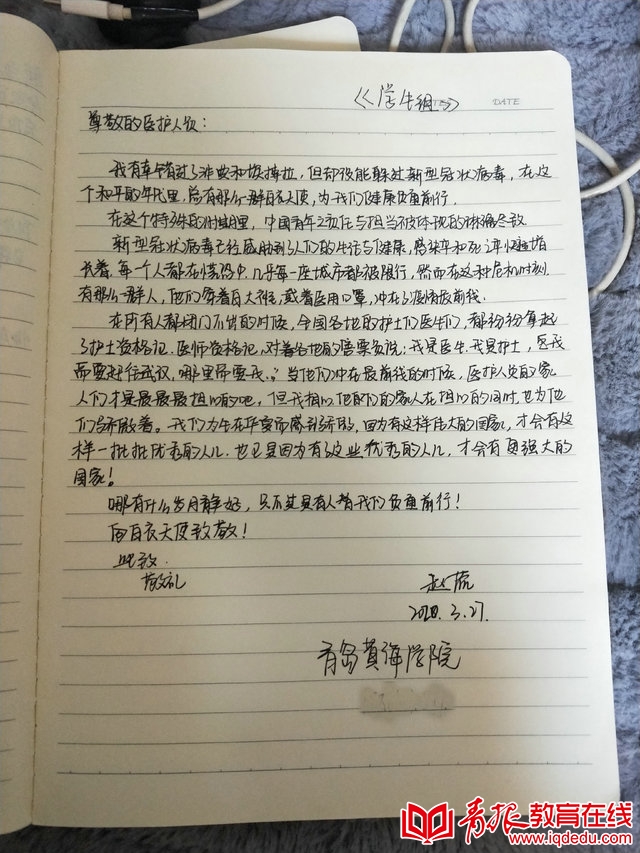 《学生组》
DATE
尊敬的医护人员：
我有幸错过了非典和埃博拉，但却没能躲过新型冠状病毒，在这
个和平的年代里，总有那么一群白衣天使，为我们健康负重前行。
在这个特殊的时期里，中国青年之责任与担当被体现的淋漓尽致
新型冠状病毒已经威胁到了人们的生活与健康，感染率和死亡率慢慢增
长着，每一个人都在惊恐中，几乎每一座城市都被限行，然而在这种危机时刻
有那么一群人，他们穿着白大褂，戴着医用口罩，冲在了疫情最前线。
在所有人都闭门不出的时候，全国各地的护士们医生们，都纷纷拿起
了护士资格证，医师资格证，对着各地的售票员说：我是医生，我是护士，
需要赶往武汉，哪里需要我。”当他们冲在最前线的时候，医护人员的家
人们才是最最最担心的吧，但我相信他们的家人在担心的同时，也为他
们骄傲着。我们为生在华夏而感到骄傲，因为有这样伟大的国家，才会有这
样一批批优秀的人儿，也正是因为有了这些优秀的人儿，才会有更强大的
国家！
哪有什么岁月静好，只不过是有人替我们负重前行！
向白衣天使致敬！
此致
敬礼
赵
2020.3.27.
青岛黄海学院
青报教育在线
www.iqdedu.com